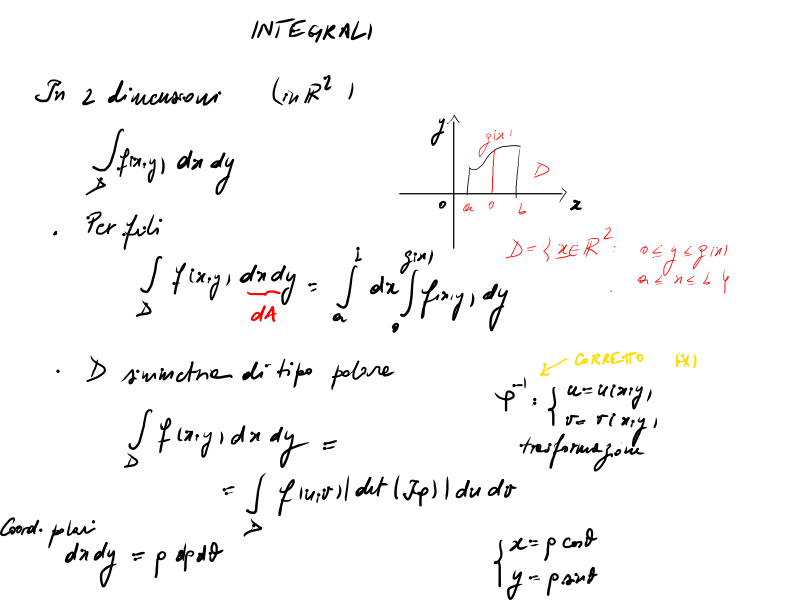 INTEGRALI
In 2 dimensioni (in ℝ²)
∫_D f(x,y) dx dy
y
g(x)
D
0 a 0 b x
. Per fili
D = { x ∈ ℝ² : 0 ≤ y ≤ g(x)
a ≤ x ≤ b }
∫_D f(x,y) dx dy = ∫_a dx ∫_0^{g(x)} f(x,y) dy
dA
. D simmetria di tipo polare
CORRETTO (*)
φ⁻¹ : { u = u(x,y)
v = v(x,y)
trasformazione
∫_D f(x,y) dx dy =
= ∫_D f(u,v) |det (Jφ)| du dv
Coord. polari
dx dy = ρ dρ dθ
{ x = ρ cosθ
y = ρ sinθ